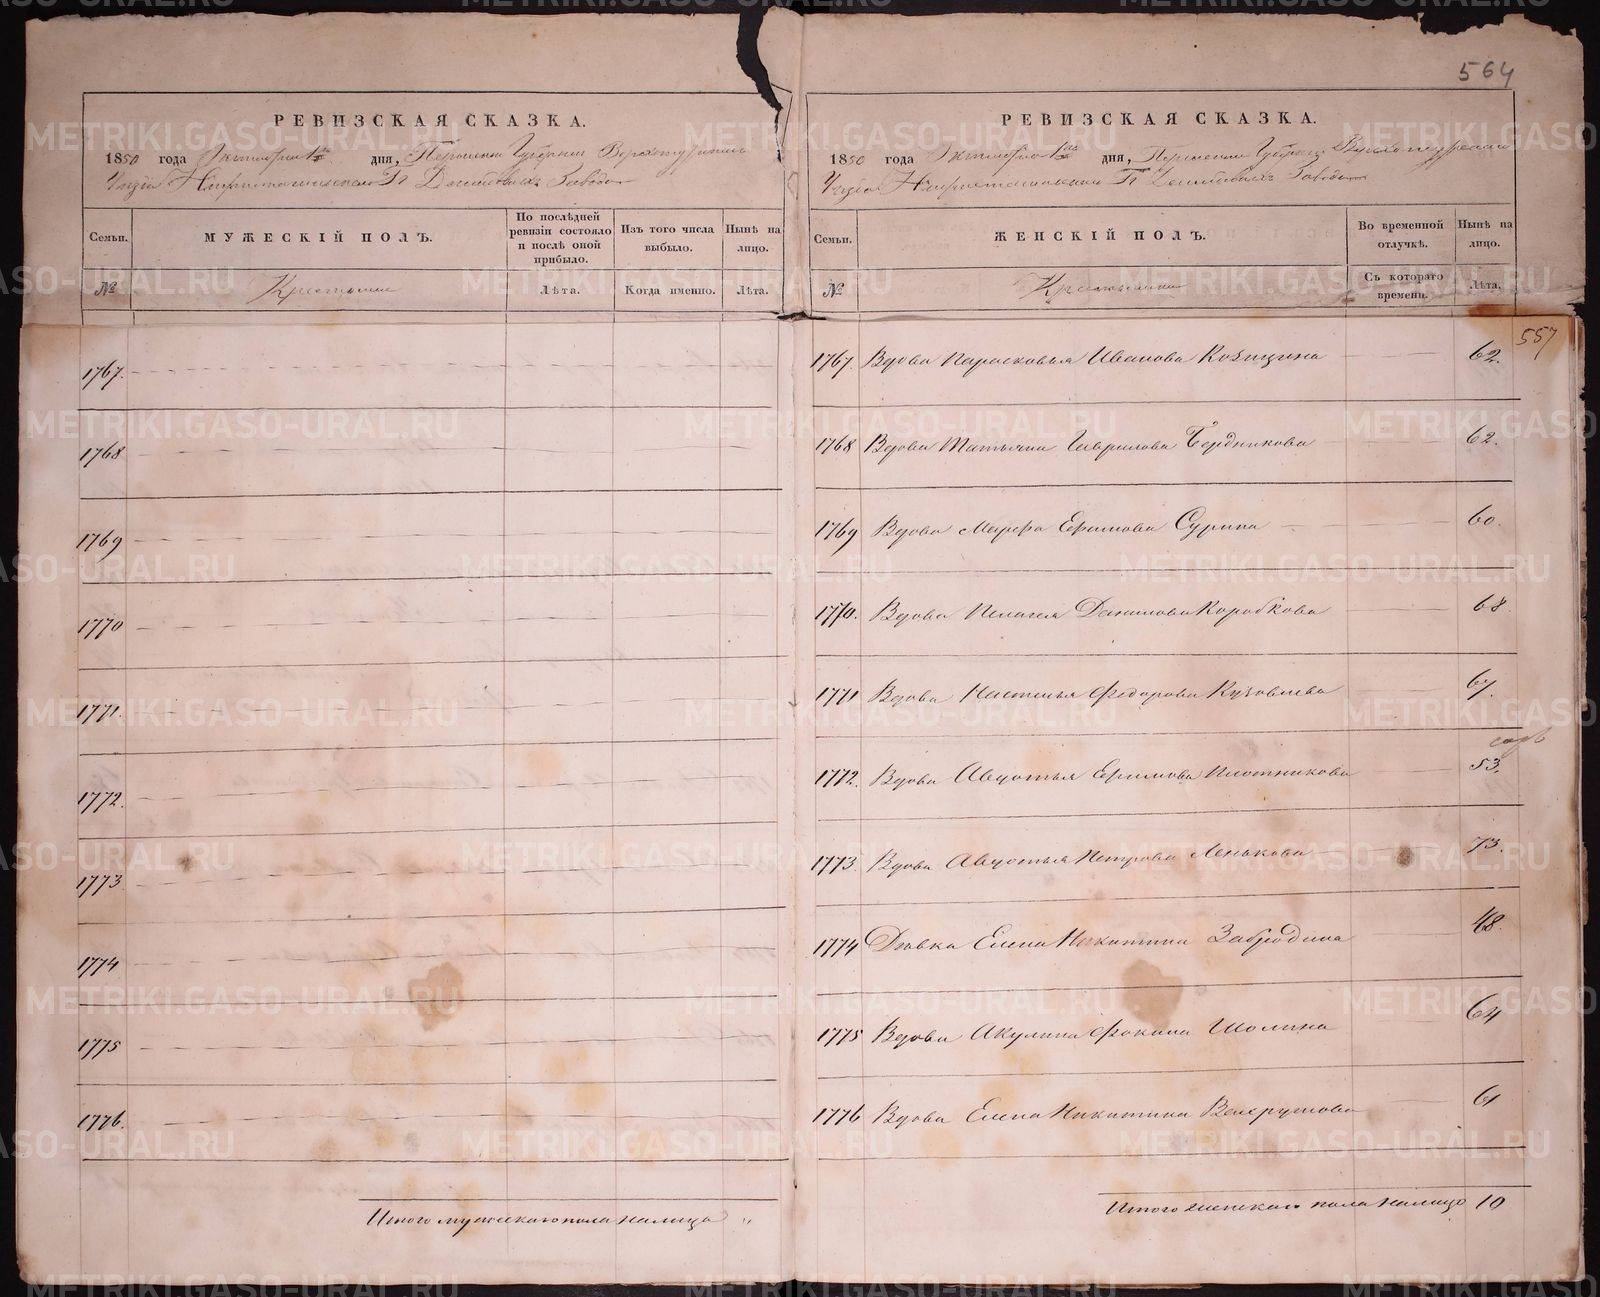 564
РЕВИЗСКАЯ СКАЗКА.
1850 года Октября 1го дня, Пермской Губернии Верхотурскаго
Уезда Нижнетагильскаго Гг Демидовыхъ Завода
Семьи.
МУЖЕСКІЙ ПОЛЪ.
По послѣдней ревизіи состояло и послѣ оной прибыло.
Изъ того числа выбыло.
Нынѣ на лицо.
№
Крестьяне
Лѣта.
Когда именно.
Лѣта.
1767.
1768
1769
1770
1771.
1772.
1773
1774
1775
1776.
Итого мужескаго пола налицо "
РЕВИЗСКАЯ СКАЗКА.
1850 года Октября 1го дня, Пермской Губерніи Верхотурскаго
Уезда Нижнетагильскаго Гг Демидовыхъ Завода
Семьи.
ЖЕНСКІЙ ПОЛЪ.
Во временной отлучкѣ.
Нынѣ на лицо.
№
Крестьянки
Съ котораго времени.
Лѣта.
557
1767. Вдова Парасковья Иванова Козицина 62.
1768 Вдова Татьяна Гаврилова Бердникова 62.
1769 Вдова Марфа Ефимова Сурина 60.
1770. Вдова Пелагея Данилова Коробкова 68.
1771 Вдова Настасья Федорова Кузовлева 67.
1772. Вдова Авдотья Ефимова Плотникова 53.
1773. Вдова Авдотья Петрова Ленькова 73.
1774 Дѣвка Елена Никитина Забродина 48.
1775 Вдова Акулина Фокина Шолина 64
1776 Вдова Елена Никитина 61
Итого женскаго пола налицо 10
METRIKI.GASO-URAL.RU